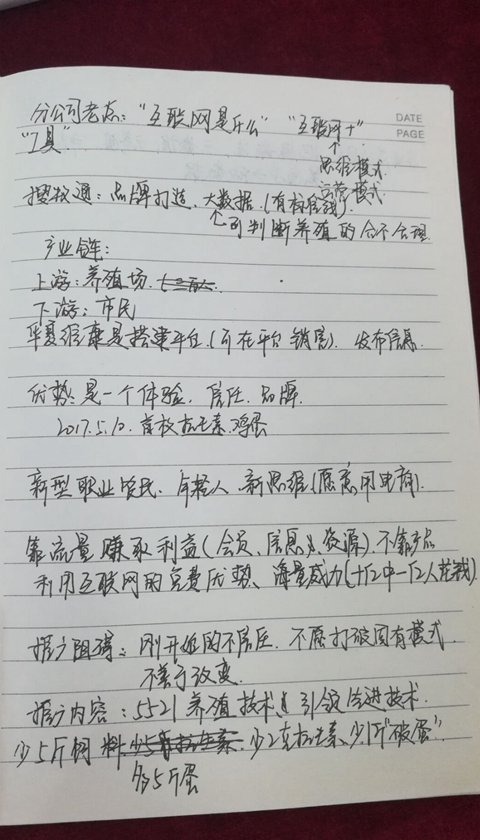 DATE
PAGE
分公司老总：“互联网是什么” “互联网+”
“工具”
思维模式
运营模式
搜牧通：品牌打造、大数据.(有标信钱).
可判断养殖的合不合理
产业链：
上游：养殖场.
下游：市民
华夏维康是搭建平台.(可在平台销售). 发布信息.
优势：是一个体验. 信任. 品牌.
2017.5.10. 首枚抗生素.鸡蛋
新型职业农民. 年轻人. 新思维(愿意用电商).
靠流量赚取利益(会员、信息、资源).不靠产品
利用互联网的免费优势、海量威力(十亿中一亿人花钱).
推广阻碍：刚开始的不信任. 不愿打破固有模式.
不善于改变.
推广内容：5521养殖技术 引领先进技术.
少5斤饲料 少2克抗生素、少1斤“破蛋”
多5斤蛋